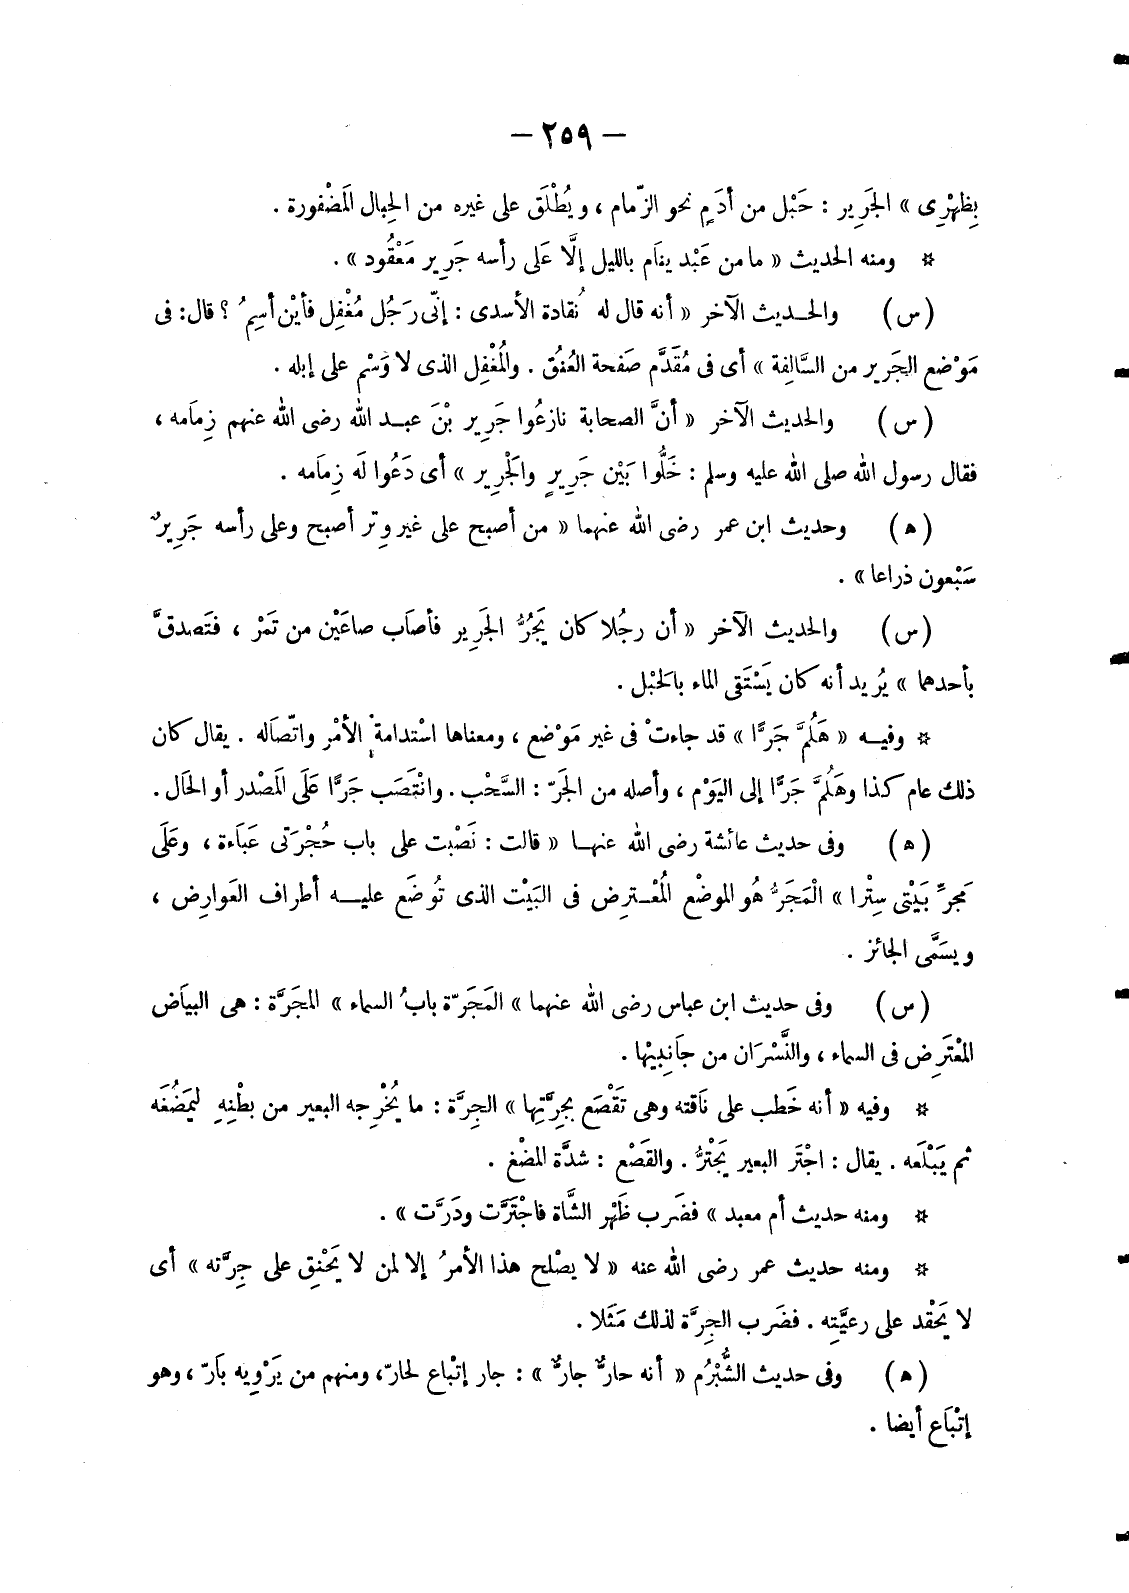 — ٢٥٩ —
بِظهْرِى » الجَرِير : حَبْل من أدَمٍ نحو الزّمام ، ويُطْلَق على غيره من الحِبال المَضْفورة .
* ومنه الحديث « ما من عَبْد ينَام بالليل إلَّا عَلى رأسه جَرِير مَعْقُود » .
( س ) والحـديث الآخر « أنه قال له نُقادة الأسدى : إنّى رَجُل مُغْفِل فأيْن أسِمُ ؟ قال: فى
مَوْضع الجَرِير من السَّالِفة » أى فى مُقَدَّم صَفحة العُنُق . والمُغْفِل الذى لا وَسْم على إبله .
( س ) والحديث الآخر « أنَّ الصحابة نازعُوا جَرِير بْنَ عبـد الله رضى الله عنهم زِمامَه ،
فقال رسول الله صلى الله عليه وسلم : خَلُّوا بَيْن جَرِيرٍ والجَرِير » أى دَعُوا لَه زِمامَه .
( ه ) وحديث ابن عمر رضى الله عنهما « من أصبح على غير وِتر أصبح وعلى رأسه جَرِيرٌ
سَبْعون ذراعا » .
( س ) والحديث الآخر « أن رجُلا كان يَجُرُّ الجَرِير فأصَاب صاعَيْن من تَمْر ، فتَصدقَّ
بأحدهما » يُريد أنه كان يَسْتَقى الماء بالحَبْل .
* وفيـه « هَلُمَّ جَرًّا » قد جاءتْ فى غير مَوْضع ، ومعناها اسْتدامة الأمْر واتّصَاله . يقال كان
ذلك عام كذا وهَلُمَّ جَرًّا إلى اليَوْم ، وأصله من الجَرّ : السَّحْب . وانْتَصَب جَرًّا عَلَى المَصْدر أو الحَال .
( ه ) وفى حديث عائشة رضى الله عنهـا « قالت : نَصْبت على باب حُجْرَتى عَبَاءة ، وعَلَى
مَجرِّ بَيْتى سِتْرا » الْمَجَرُّ هُو الموضْع المُعْـترِض فى البَيْت الذى تُوضَع عليـه أطراف العَوارِض ،
ويسَمَّى الجائز .
( س ) وفى حديث ابن عباس رضى الله عنهما » المَجَرّة بابُ السماء » المجَرَّة : هى البيَاَض
المْعَترِض فى السماء ، والنَّسْرَان من جَانِبيْها .
* وفيه « أنه خَطب على نَاقته وهى تَقْصَع بِجِرَّتِها » الجِرَّة : ما يُخْرِجه البعير من بطْنِهِ لِيَمضُغَه
ثم يَبْلَعه . يقال : اجْتَر البعير يَجْترُّ . والقَصْع : شدَّة المضْغ .
* ومنه حديث أم معبد » فضَرب ظَهْر الشَّاة فاجْتَرَّت ودَرَّت » .
* ومنه حديث عمر رضى الله عنه « لا يصْلح هذا الأمرُ إلا لمن لا يَحْنِق على جِرَّته » أى
لا يَحْقد على رعيَّتِه . فضَرب الجِرَّة لذلك مَثَلا .
( ه ) وفى حديث الشُّبْرُم « أنه حارٌّ جارٌّ » : جار إتْباع لحارّ، ومنهم من يَرْوِيه بَارّ ، وهو
إتْبَاع أيضا .